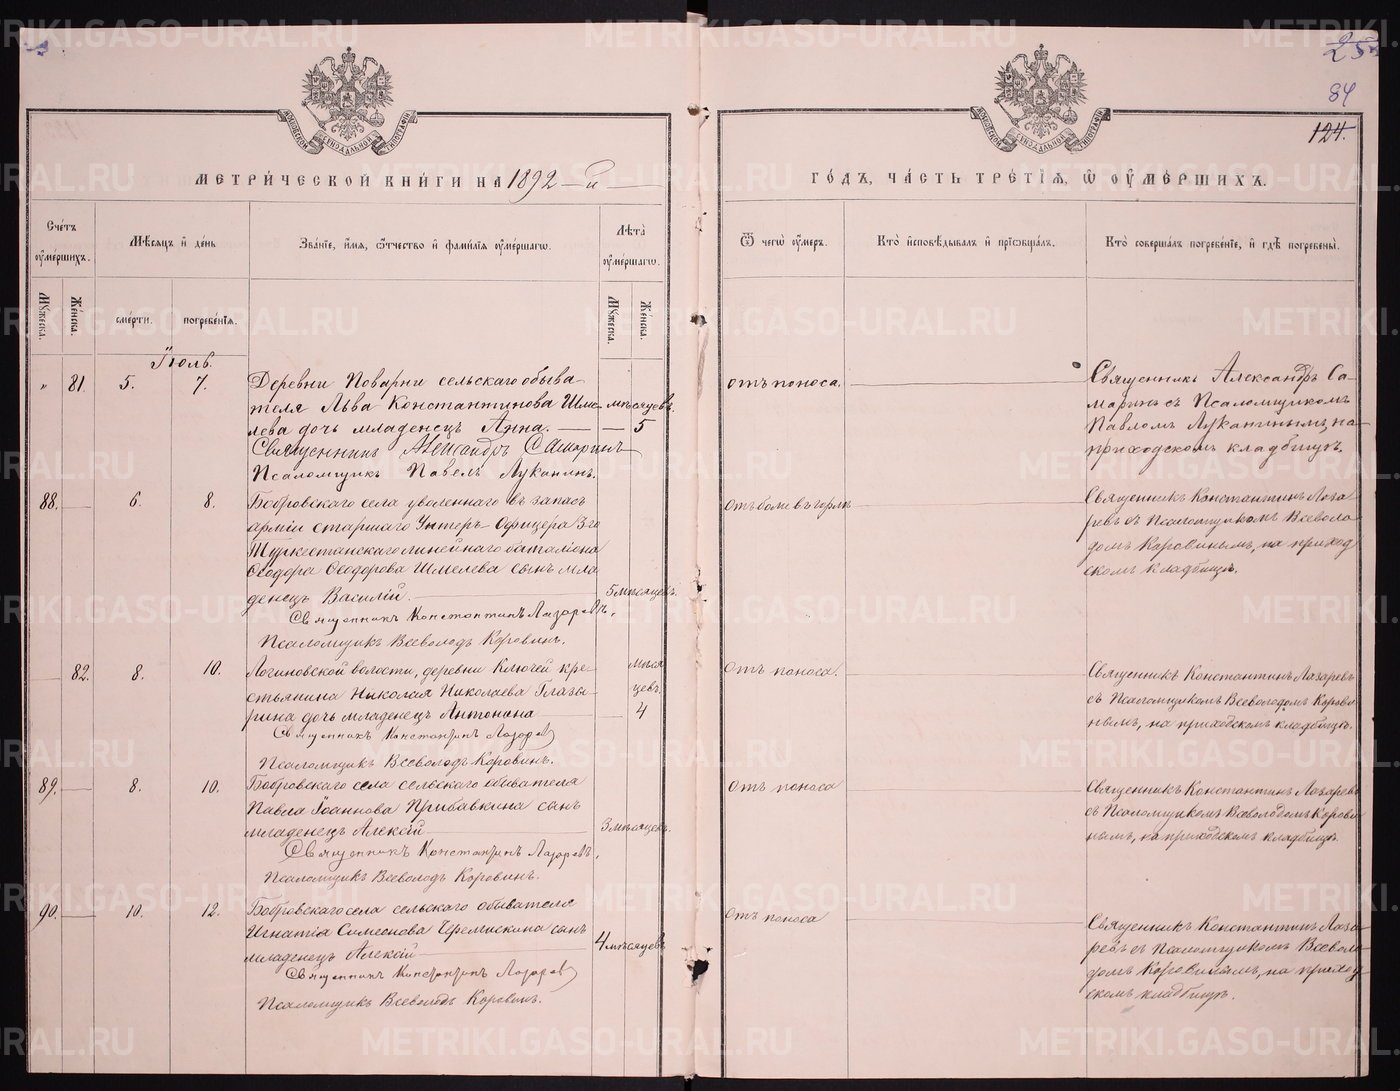 254
84
124.
МОСКОВСКОЙ СѴНОДАЛЬНОЙ ТИПОГРАФІИ
МОСКОВСКОЙ СѴНОДАЛЬНОЙ ТИПОГРАФІИ
МЕТРИ́ЧЕСКОЙ КНИ́ГИ НА 1892 й
ГО́ДЪ, ЧА́СТЬ ТРЕ́ТІѦ, Ѡ҆ ОУ҆МЕ́РШИХЪ.
Сче́тъ оу҆ме́ршихъ.
Мѣ́сѧцъ и҆ де́нь
Зва́нїе, и҆́мѧ, ѻ҆́тчество и҆ фами́лїѧ оу҆ме́ршагѡ.
Лѣ́та оу҆ме́ршагѡ.
Ѿ чегѡ̀ оу҆́меръ.
Кто̀ и҆сповѣ́дывалъ и҆ прїѡбща́лъ.
Кто̀ соверша́лъ погребе́нїе, и҆ гдѣ̀ погребены̀.
Мꙋ́жеска.
Же́нска.
сме́рти.
погребе́нїѧ.
Мꙋ́жеска.
Же́нска.
Іюль.
„ 81. 5. 7. Деревни Поварни сельскаго обыва-
теля Льва Константинова Шме- мѣсяцевъ.
лева дочь младенецъ Анна. — 5
Священникъ Александръ Самаринъ
Псаломщикъ Павелъ Луканинъ.
отъ поноса.
Священникъ Александръ Са-
маринъ съ Псаломщикомъ
Павломъ Луканинымъ, на
приходскомъ кладбищѣ.
88. 6. 8. Бобровскаго села уволеннаго въ запасъ
арміи старшаго Унтеръ-Офицера 3го
Туркестанскаго линейнаго баталіона
Ѳеодора Ѳеодорова Шмелева сынъ мла
денецъ Василій. 5 мѣсяцевъ.
Священникъ Константинъ Лазаревъ,
Псаломщикъ Всеволодъ Коровинъ.
Отъ боли въ горлѣ
Священникъ Константинъ Лаза
ревъ съ Псаломщикомъ Всеволо
домъ Коровинымъ, на приход
скомъ кладбищѣ.
82. 8. 10. Логиновской волости, деревни Ключей кре- мѣся
стьянина Николая Николаева Глазы- цевъ.
рина дочь младенецъ Антонина 4
Священникъ Константинъ Лазарев
Псаломщикъ Всеволодъ Коровинъ.
Отъ поноса.
Священникъ Константинъ Лазаревъ
съ Псаломщикомъ Всеволодомъ Корови
нымъ, на приходскомъ кладбищѣ.
89. 8. 10. Бобровскаго села сельскаго обывателя
Павла Іоаннова Прибавкина сынъ
младенецъ Алексій 3 мѣсяцевъ.
Священникъ Константинъ Лазаревъ,
Псаломщикъ Всеволодъ Коровинъ.
Отъ поноса
Священникъ Константинъ Лазаревъ
съ Псаломщикомъ Всеволодомъ Корови
нымъ, на приходскомъ кладбищѣ.
90. 10. 12. Бобровскаго села сельскаго обывателя
Игнатія Симеонова Черемискина сынъ
младенецъ Алексій 4 мѣсяцевъ
Священникъ Константинъ Лазарев
Псаломщикъ Всеволодъ Коровинъ.
Отъ поноса
Священникъ Константинъ Лаза
ревъ съ Псаломщикомъ Всеволо
домъ Коровинымъ, на приход
скомъ кладбищѣ.
METRIKI.GASO-URAL.RU